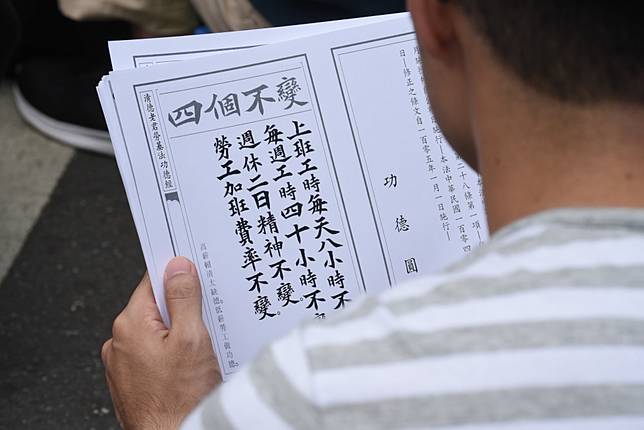 二十八條第一項
本法中華民國一百零四
日修正之條文自一百零五年一月一日施行
功德圓
四個不變
上班工時每天八小時不
每週工時四十小時不變。
週休二日精神不變。
勞工加班費率不變。
高薪賴清太缺德。低薪勞工做功德。
清德老君勞基法功德經